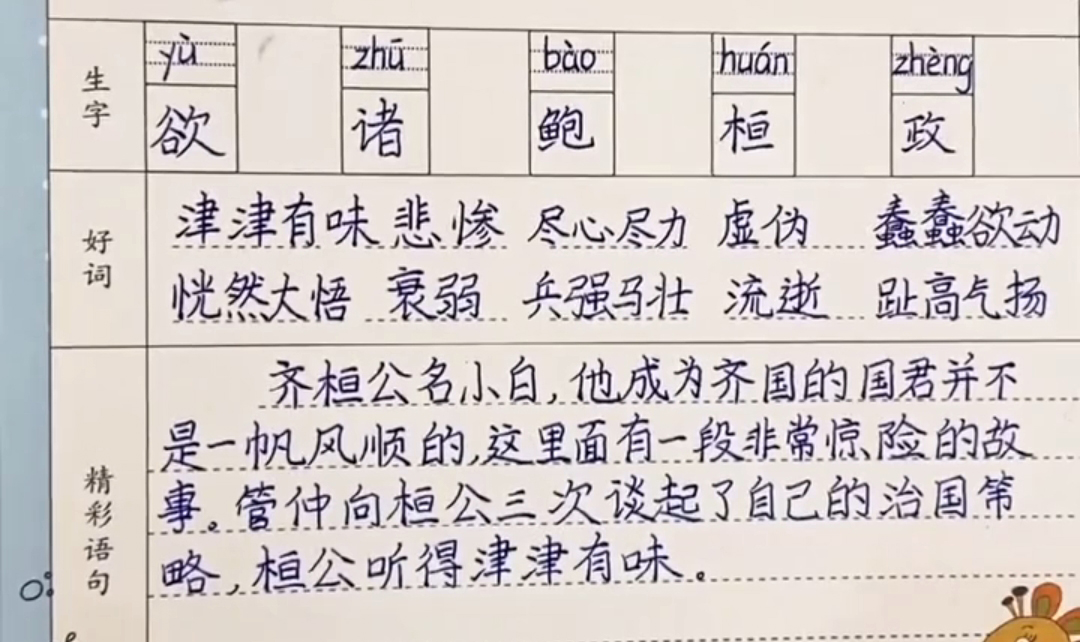 生字
yù zhū bào huán zhèng
欲 诸 鲍 桓 政
好词
津津有味 悲惨 尽心尽力 虚伪 蠢蠢欲动
恍然大悟 衰弱 兵强马壮 流逝 趾高气扬
精彩语句
齐桓公名小白,他成为齐国的国君并不
是一帆风顺的,这里面有一段非常惊险的故
事。管仲向桓公三次谈起了自己的治国策
略,桓公听得津津有味。